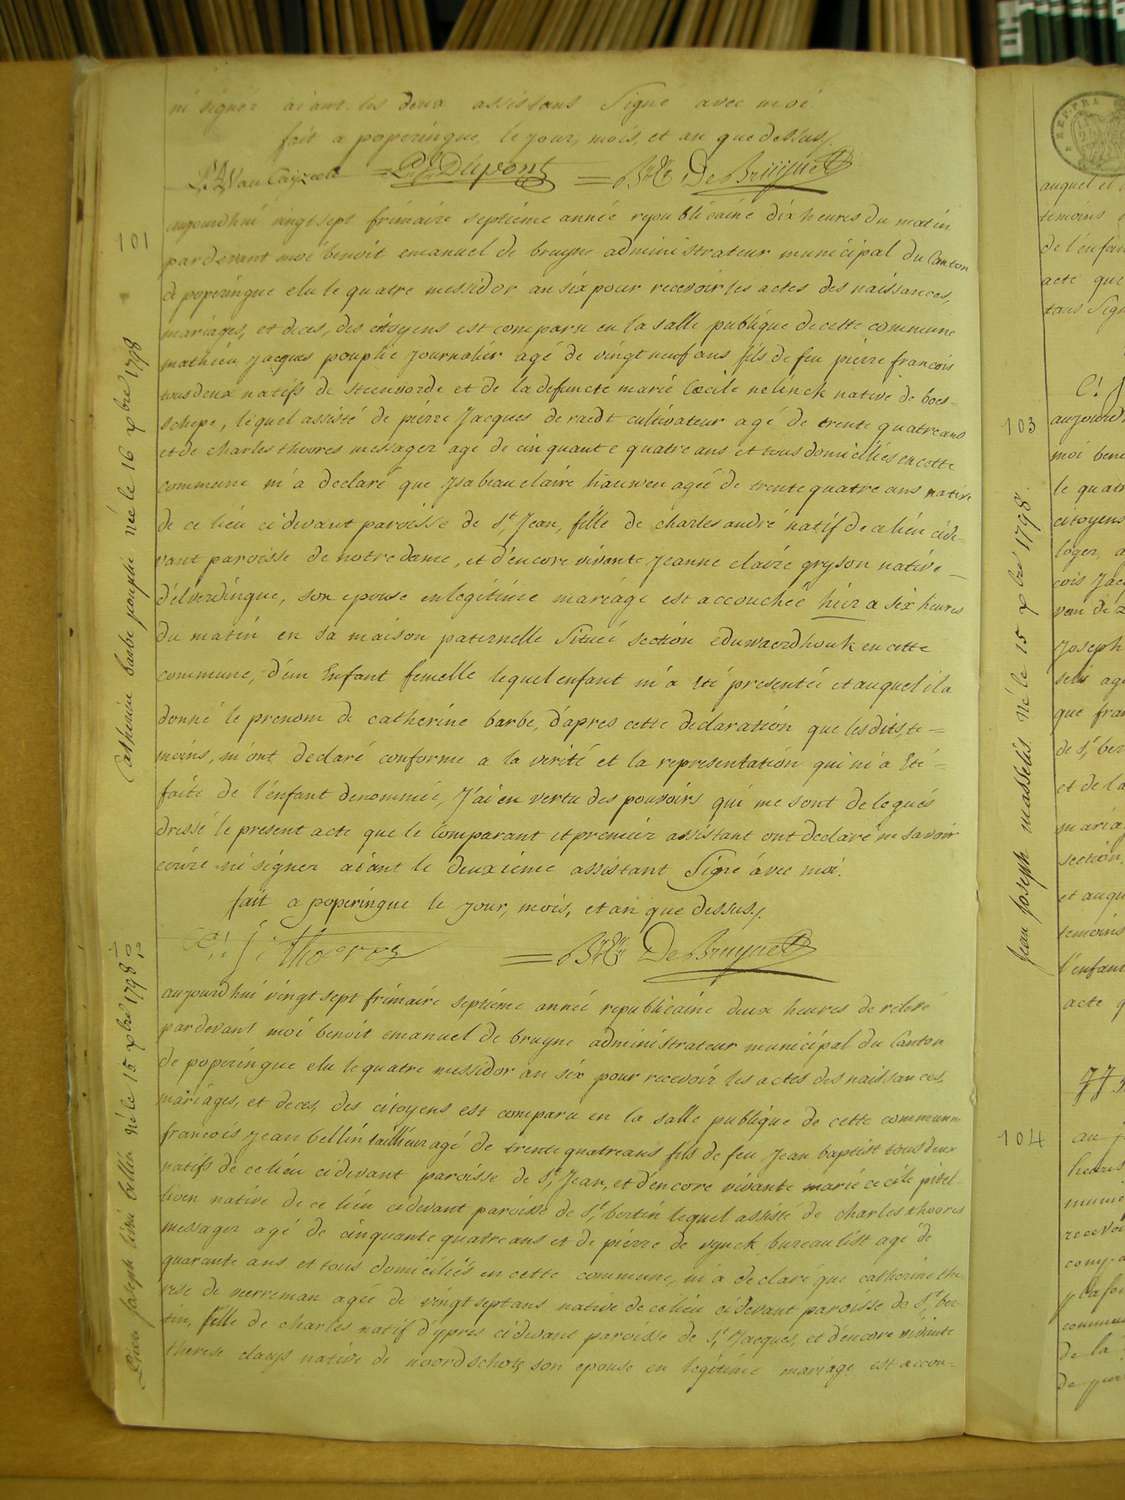 ni signer aiant les deux assistans Signé avec moi
fait a poperingue, le jour, mois, et an que dessus,
Dupont De Bruyne
101
aujourdhui vingt sept frimaire septiéme année republicaine dix heures du matin
pardevant moi benoit emanuel de bruyne administrateur municipal du Canton
de poperingue elu le quatre messidor an six pour recevoir les actes des naissances,
mariages, et deces, des citoyens est comparu en la salle publique de cette commune
mathieu jacques pouplie journalier agé de vingt neuf ans fils de feu pierre francois
tous deux natifs de steenvorde et de la defuncte marie Cecile nelinck native de boes-
schepe, lequel assisté de pierre Jacques de raedt cultivateur agé de trente quatre ans
et de charles thoores messager agé de cinquante quatre ans et tous domiciliés en cette
commune m'a declaré que ysabeau claire hauwen ageé de trente quatre ans native
de ce lieu cidevant paroisse de St Jean, fille de charles andré natif de ce lieu cide-
vant paroisse de notre dame, et d'encore vivante Jeanne claire gryson native
d'elverdinque, son epouse en legitime mariage est accoucheé hier a six heures
du matin en sa maison paternelle Situeé section eduwaerdhouk en cette
commune, d'un Enfant femelle lequel enfant m'a eté presentée et auquel il a
donné le prenom de catherine barbe, d'apres cette declaration que les dits te=
moins, m'ont declaré conforme a la verité et la representation qui m'a eté=
faite de l'enfant denommée, J'ai en vertu des pouvoirs qui me sont delegués
dressé le present acte que le comparant et premier assistant ont declaré ne savoir
ecrire ni signer aiant le deuxieme assistant Signé avec moi.
fait a poperingue le jour, mois, et an que dessus,
Thoores De Bruyne
Catherine barbe pouplie née le 16 xbre 1798
102
aujourdhui vingt sept frimaire septiéme année republicaine deux heures de relevé
pardevant moi benoit emanuel de bruyne administrateur municipal du Canton
de poperingue elu le quatre messidor an six pour recevoir les actes des naissances,
mariages, et deces, des citoyens est comparu en la salle publique de cette commune
francois jean bellin tailleur agé de trente quatre ans fils de feu Jean baptist tous deux
natifs de ce lieu cidevant paroisse de St Jean, et d'encore vivante marie cecile
native de ce lieu cidevant paroisse de St bertin lequel assisté de charles thoores
messager agé de cinquante quatre ans et de pierre de vynck bureaulist agé de
quarante ans et tous domiciliés en cette commune, m'a declaré que catherine the
rese de neerreman agee de vingt sept ans native de ce lieu cidevant paroisse de St ber
tin, fille de charles natif d'ypres cidevant paroisse de St Jacques, et d'encore vivante
therese claeys native de noordschote, son epouse en legitime mariage est accou-
Joseph bellin né le 15 xbre 1798
103
Jean joseph masselis né le 15 xbre 1798.
auquel
temoins
de l'enfan
acte que
aujourd
moi ben
le quat
citoyens
Joseph
que fran
de St ber
et de la
maria
section
et auqu
temoins
l'enfant
acte q
104
au
heures
recevoi
commun
de la